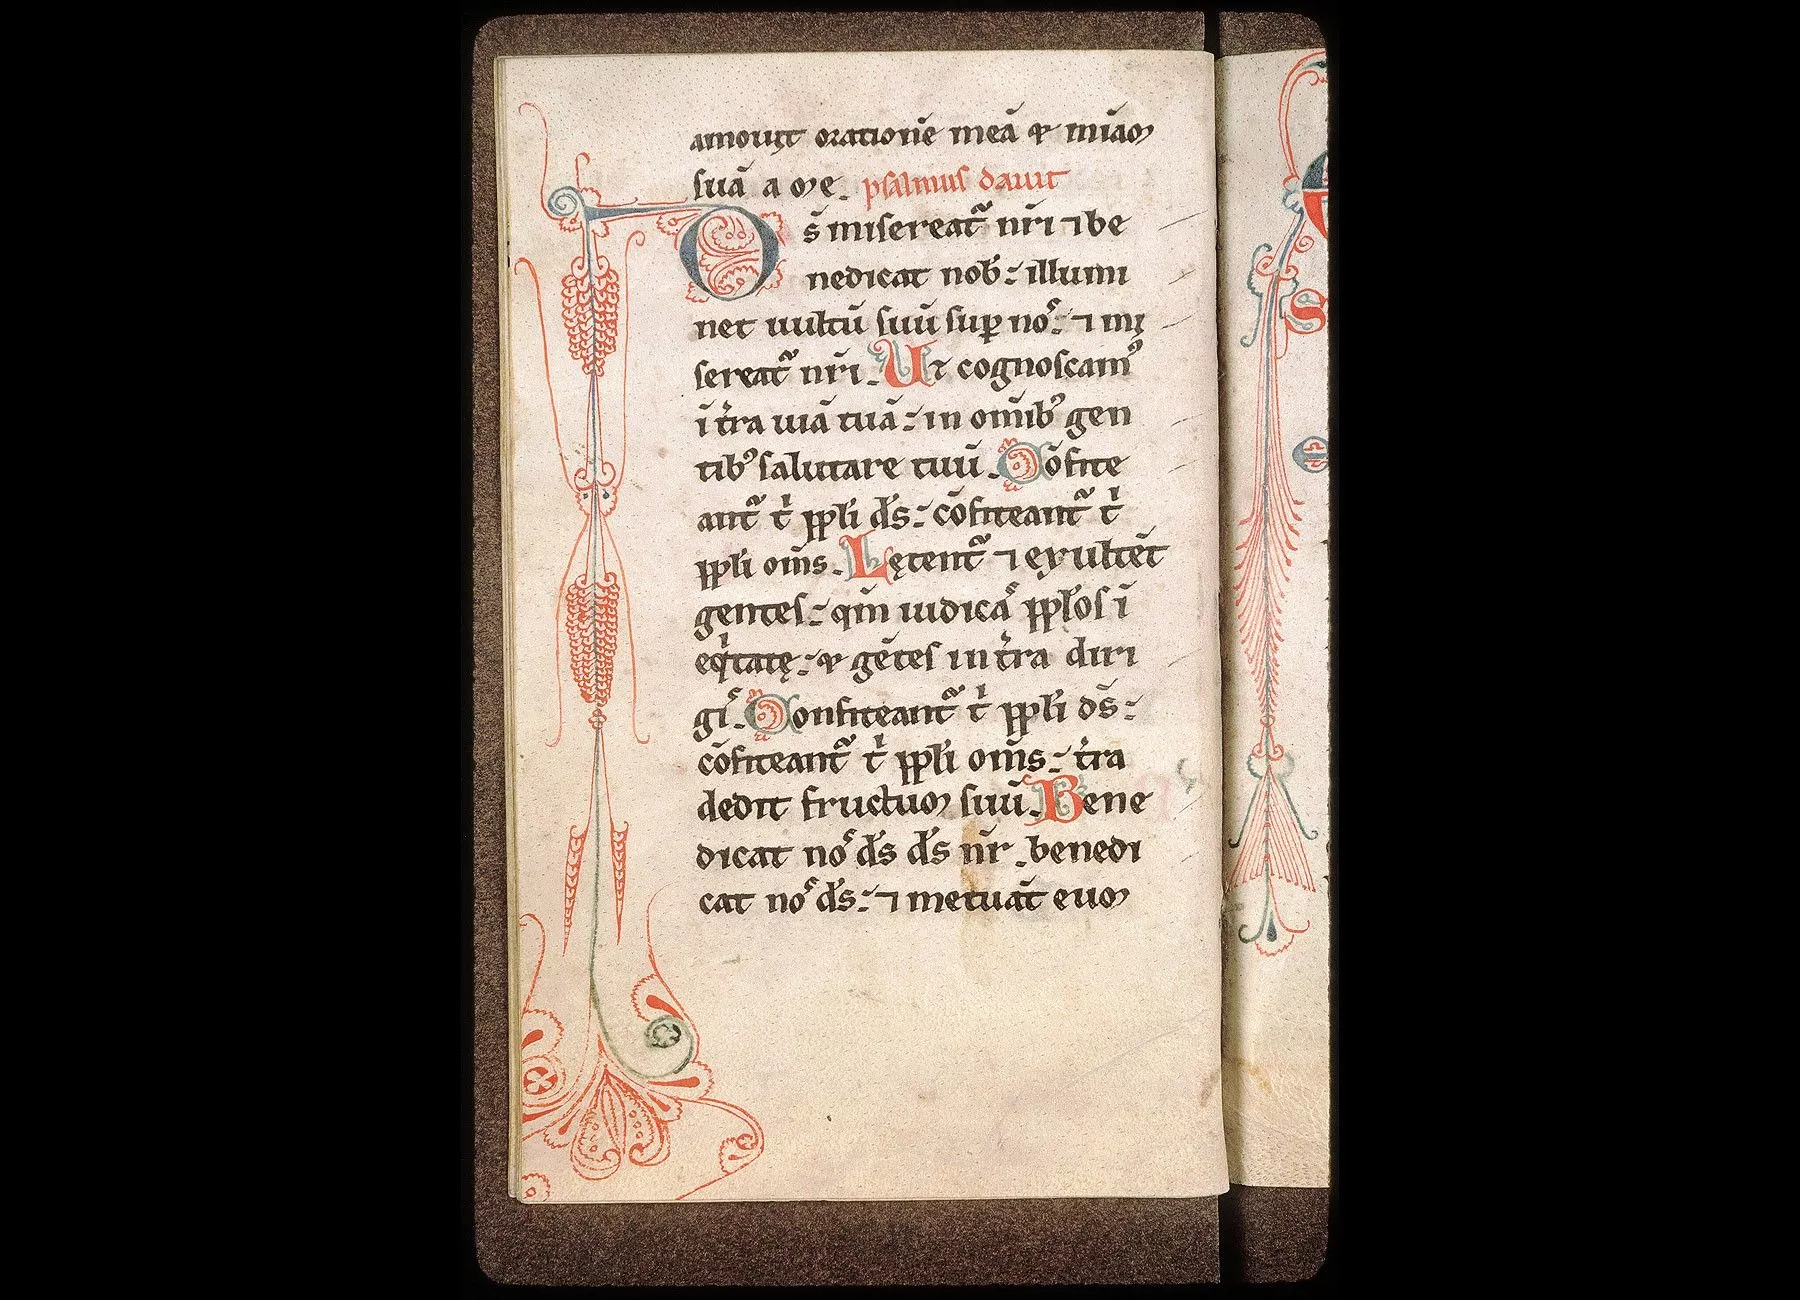 amouit orationē meā ⁊ miā
suā a me. psalmus dauit
Ds̄ misereat᷑ nr̄i ⁊ be
nedicat nob̄: illumi
net uultū suū suꝑ noˢ: ⁊ mi
sereat᷑ nr̄i. Ut cognoscamꝰ
ī tr̄a uiā tuā: in om̄ibꝰ gen
tibꝰ salutare tuū. Cōfite
ant᷑ tⁱ ppl̄i ds̄: cōfiteant᷑ tⁱ
ppl̄i om̄s. Lętent᷑ ⁊ exultēt
gentes: qm̄ iudicaˢ ppl̄os ī
eqⁱtatę: ⁊ gētes in tr̄a diri
giˢ. Confiteant᷑ tⁱ ppl̄i ds̄:
cōfiteant᷑ tⁱ ppl̄i om̄s: tr̄a
dedit fructum suū. Bene
dicat noˢ ds̄ ds̄ nr̄. benedi
cat noˢ ds̄: ⁊ metuāt eum